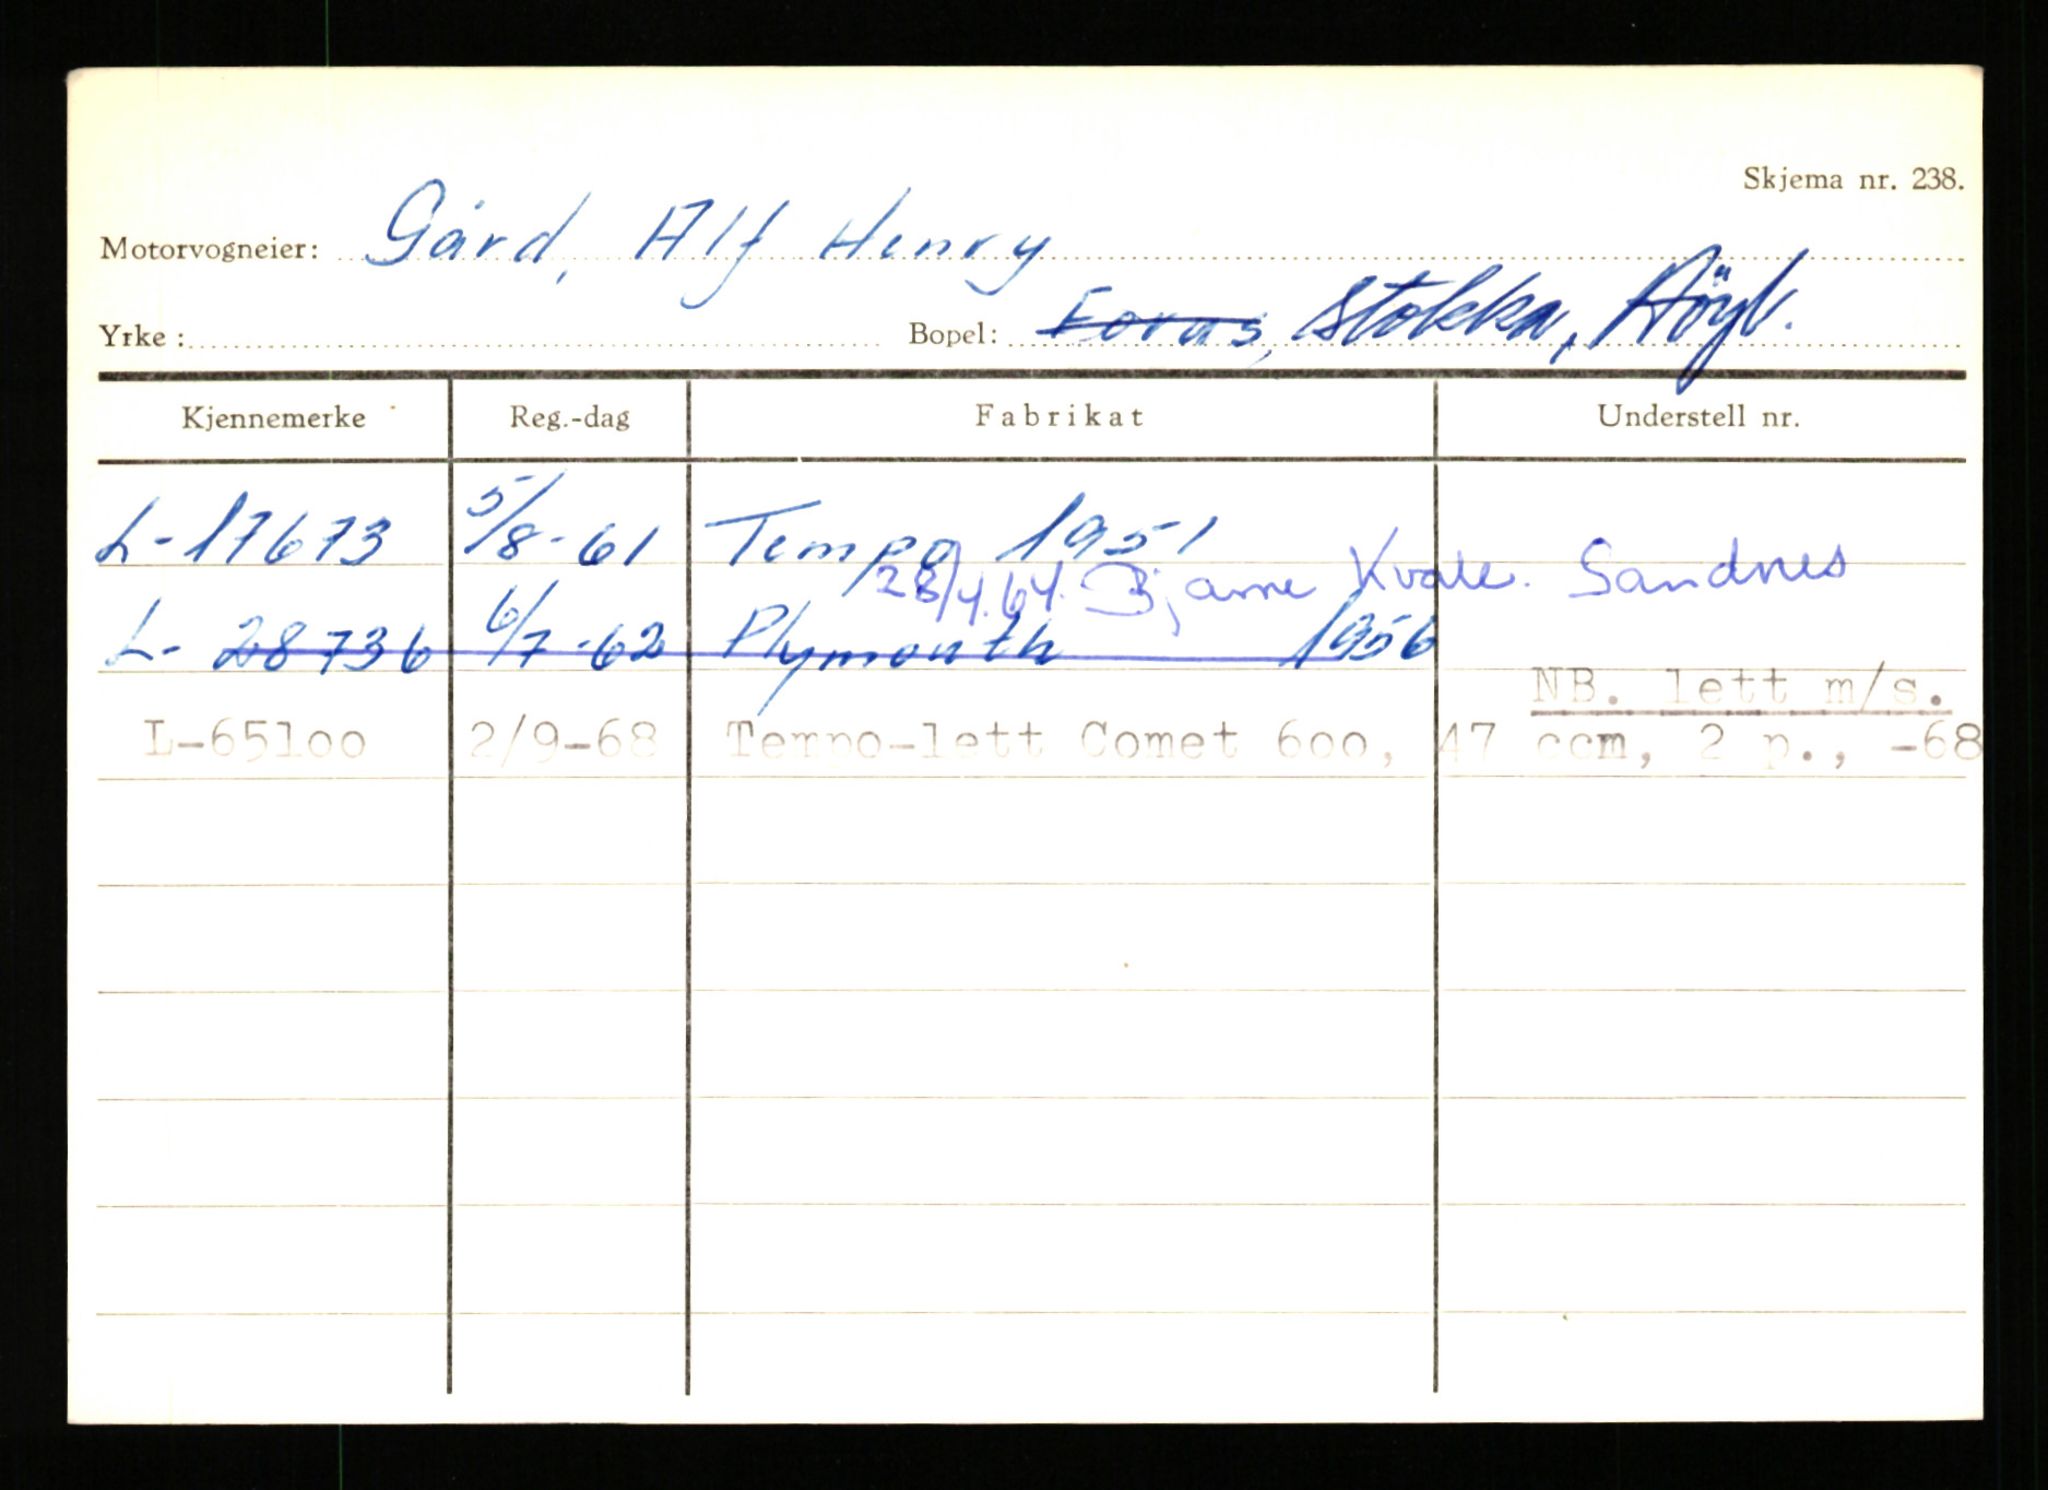 Skjema nr. 238.
Motorvogneier: Gård, Alf Henry
Yrke : Bopel: Foras, Stokka, Höyl.
Kjennemerke Reg.-dag Fabrikat Understell nr.
L-17673 5/8-61 Tempo 1951
28/4.64. Bjarne Kvale. Sandnes
L-28736 6/7-62 Plymouth 1956
NB. lett m/s.
L-65loo 2/9-68 Tempo-lett Comet 6oo, 47 ccm, 2 p., -68